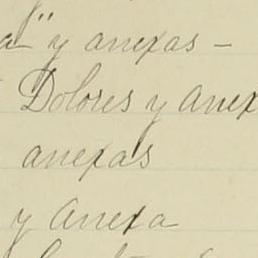 a" y anexas -
Dolores y Anex
anexas
y Anexa